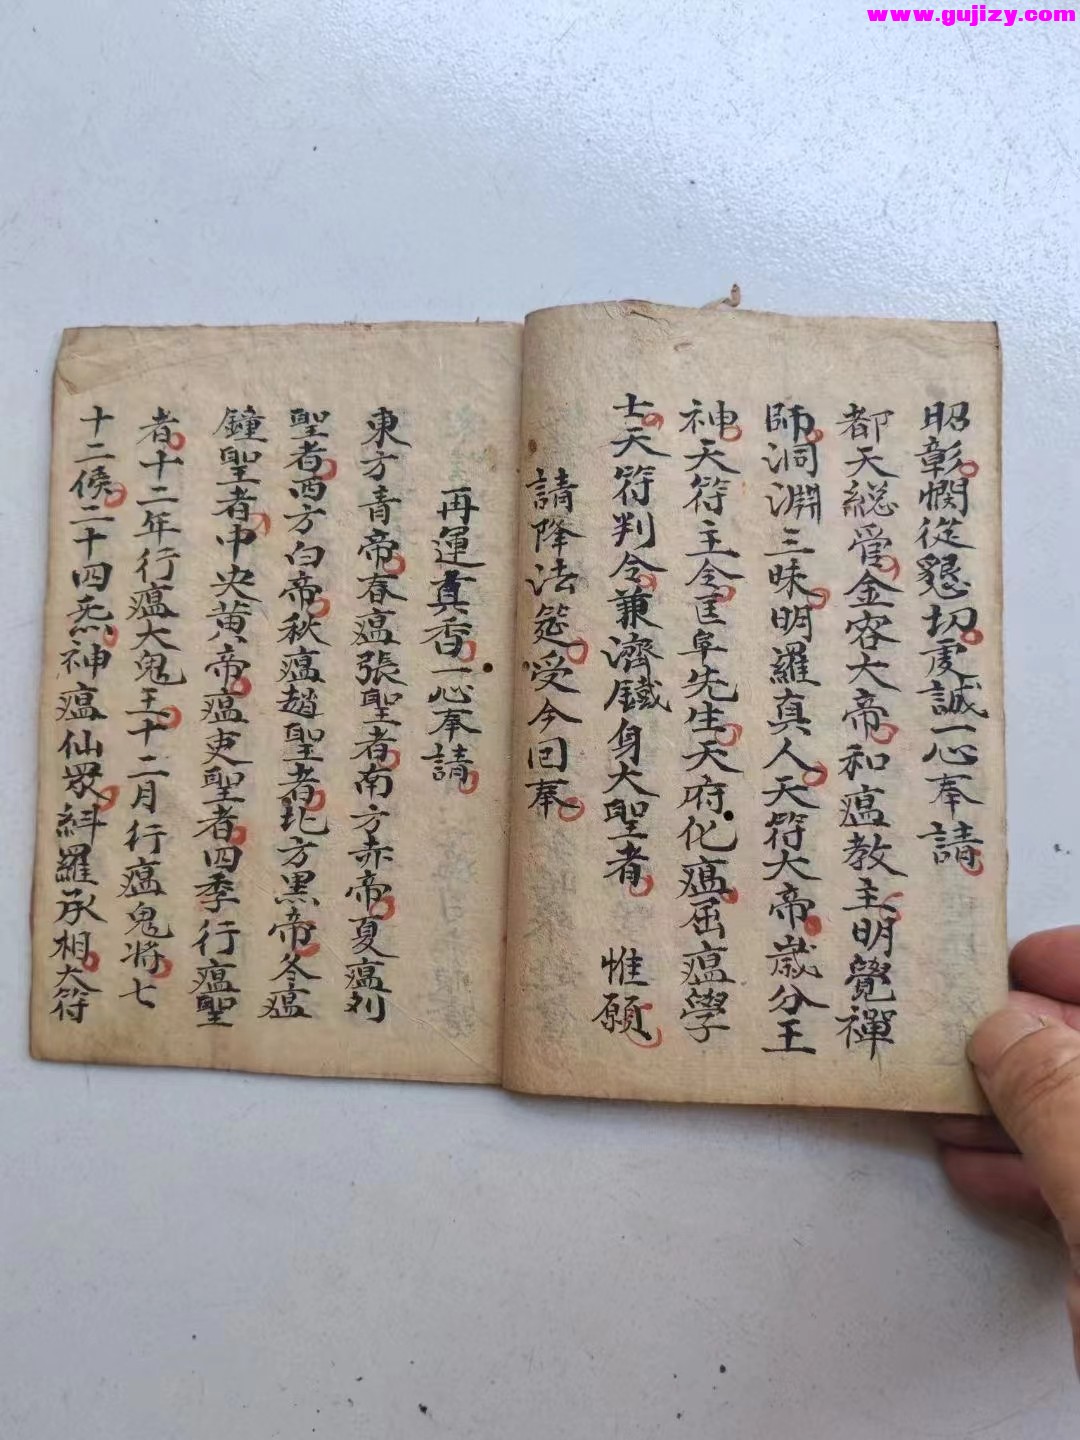 www.gujizy.com
昭彰憫從懇切虔誠一心奉請
都天総管金容大帝和瘟教主明覺禪
師洞淵三昧明羅真人天符大帝歲分王
神天符主令匡阜先生天府化瘟匤瘟學
士天符判令兼濟鐵身大聖者 惟願
請降法筵受今囙奉
再運真香一心奉請
東方青帝春瘟張聖者南方赤帝夏瘟刘
聖者西方白帝秋瘟趙聖者北方黑帝冬瘟
鐘聖者中央黄帝瘟吏聖者四季行瘟聖
者十二年行瘟大鬼王十二月行瘟鬼将七
十二候二十四炁神瘟仙眾糾羅承相天符